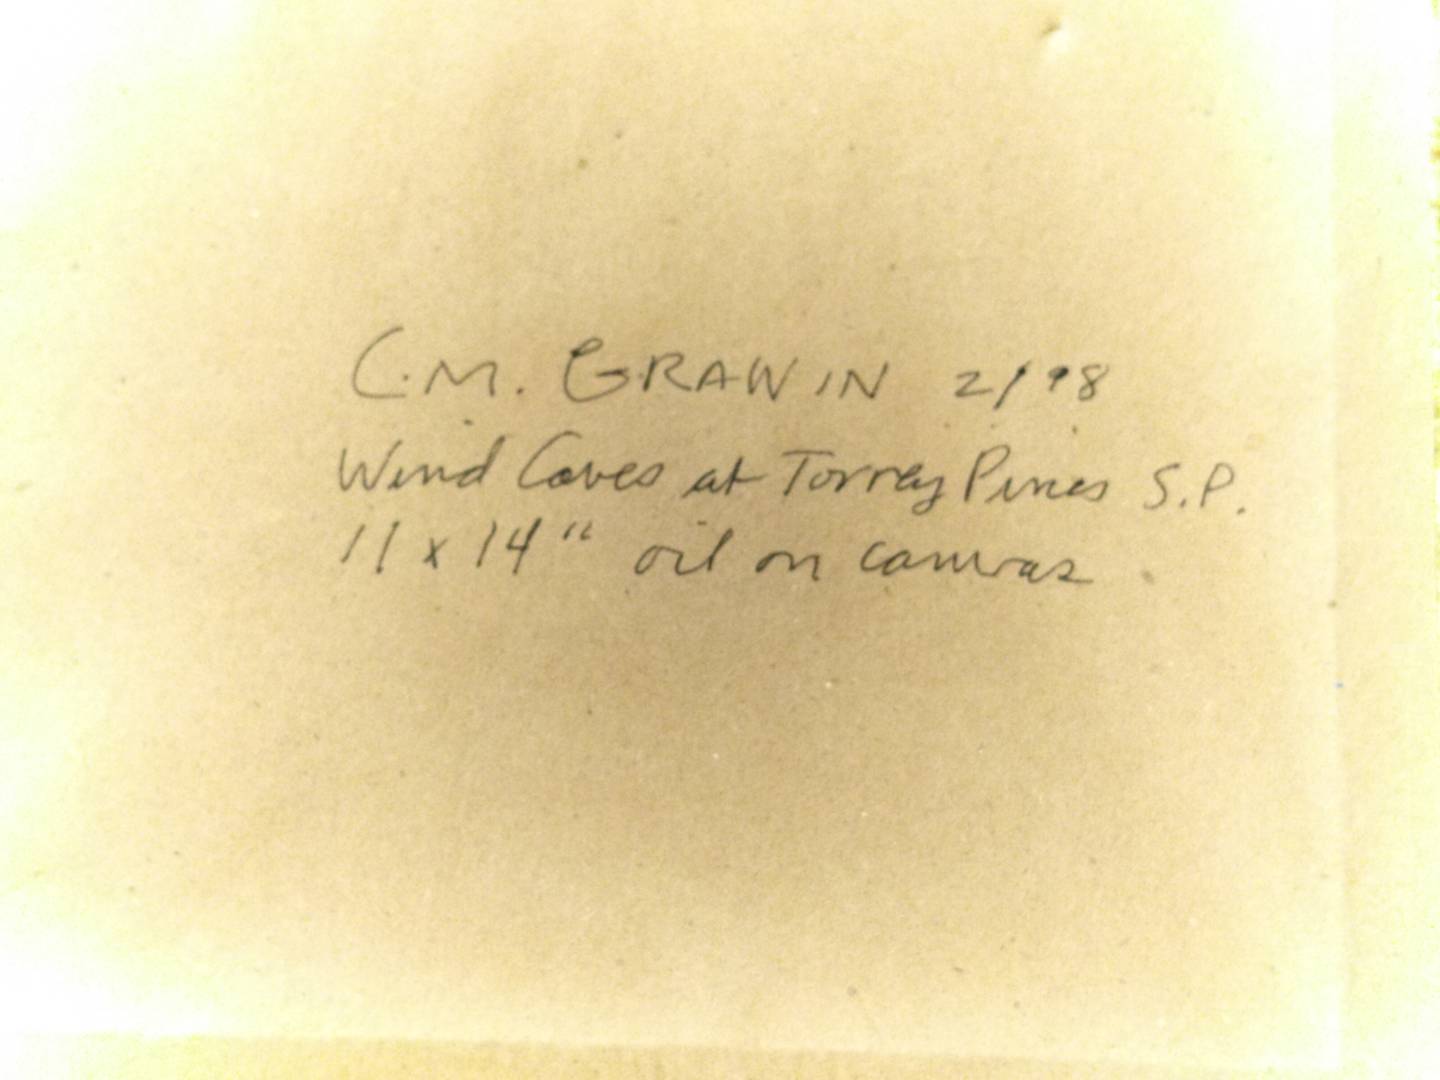 C.M. GRAWIN 2/98
Wind Caves at Torrey Pines S.P.
11 x 14" oil on canvas